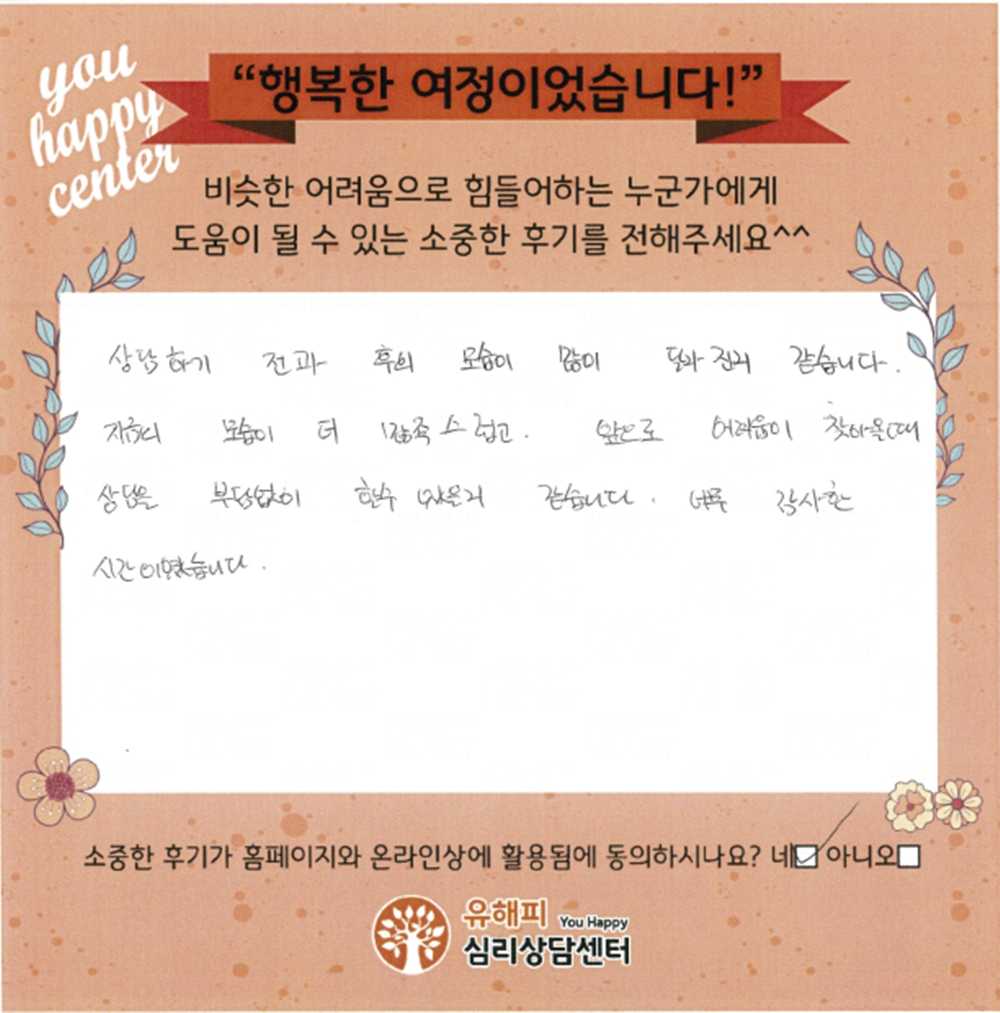 you
happy
center
“행복한 여정이었습니다!”
비슷한 어려움으로 힘들어하는 누군가에게
도움이 될 수 있는 소중한 후기를 전해주세요^^
상담하기 전과 후의 모습이 많이 달라진거 같습니다.
지금의 모습이 더 만족스럽고. 앞으로 어려움이 찾아올때
상담을 부담없이 할수 있을거 같습니다. 너무 감사한
시간이였습니다.
소중한 후기가 홈페이지와 온라인상에 활용됨에 동의하시나요? 네 아니오
유해피 You Happy
심리상담센터